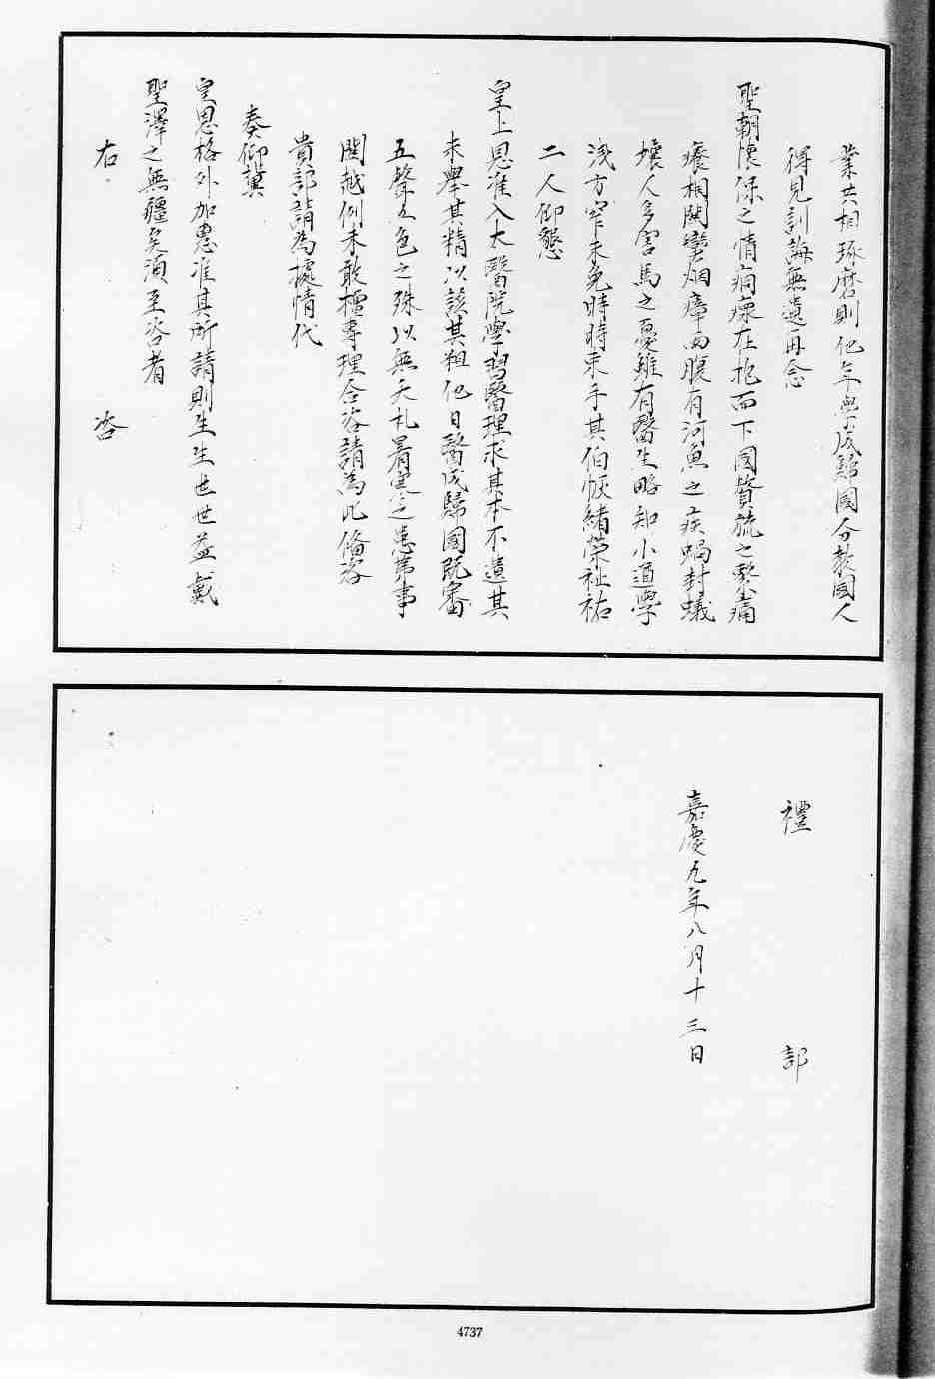 業共相琢磨則他年學成歸國分教國人
得見訓誨無遺再念
聖朝懷保之情痌瘝在抱而下國贅旒之黎痛
癢相關蠻烟瘴雨腹有河魚之疾蝸封蟻
壤人多害馬之憂雖有醫生略知小道學
淺方窄未免時時束手其伯恢緒榮祉祐
二人仰懇
皇上恩准入太醫院學習醫理求其本不遺其
末舉其精以該其粗他日醫成歸國既審
五聲五色之殊以無夭札暑寒之患第事
關越例未敢擅專理合咨請為此備咨
貴部請為據情代
奏仰冀
皇恩格外加惠准其所請則生生世世益戴
聖澤之無疆矣須至咨者
右 咨
禮 部
嘉慶九年八月十三日
4737